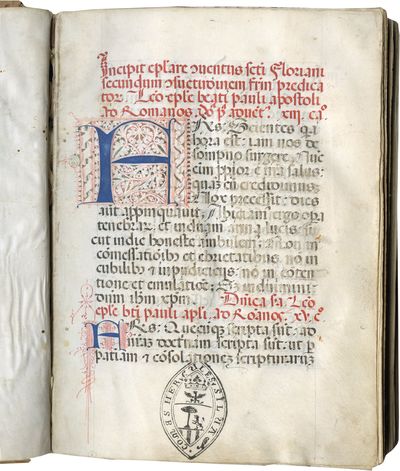 Incipit eplare ɔuentus scti Floriani
secundum ɔsuetudinem frm predica
tor. Leo eple beati pauli apostoli
ad Romanos. do. pa aduet. xiii. ca.
FRs. Scientes qa
hora est: iam nos de
sompno surgere. Nuc
eim prior e nra salus:
quaz cu credidimus.
Nox precessit: dies
aut appinquauit. Abiciam ergo opa
tenebrar: et induam arma lucis: si
cut in die honeste ambulem: No in
comessatioibs et ebrietatibus. no in
cubilibs et impudiciciis: no in coten
tione et emulatioe: S; induimini
dnm ihm xpm. Dnica sa. Leo
eple bti pauli apli. ad Roanos. xv. c.
FRs: Quecuqz scripta sut: ad
nram doctnam scripta sut: ut p
patiam et ɔsolationez scripturaruz
COM. BSHERS